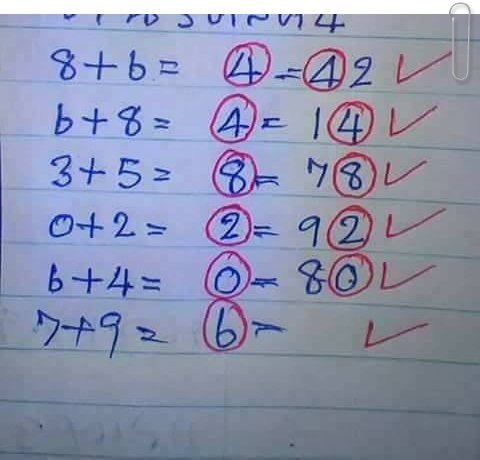 8+6= 4=42
6+8= 4= 14
3+5= 8= 78
0+2= 2= 92
6+4= 0= 80
7+9= 6=